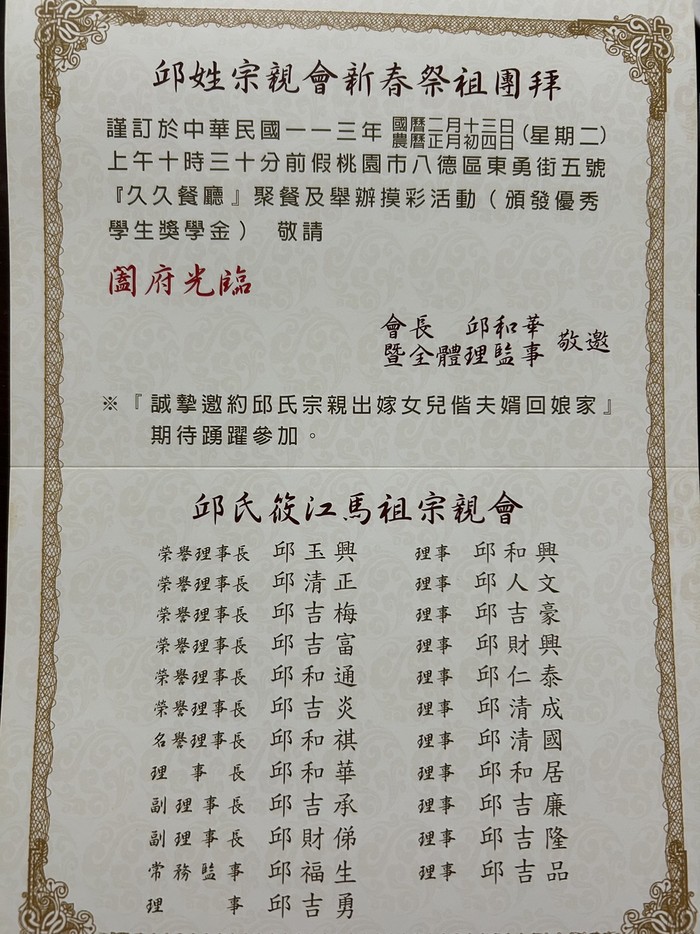 邱姓宗親會新春祭祖團拜
謹訂於中華民國一一三年 國曆二月十三日 農曆正月初四日 (星期二)
上午十時三十分前假桃園市八德區東勇街五號
『久久餐廳』聚餐及舉辦摸彩活動（頒發優秀
學生獎學金） 敬請
闔府光臨
會長 邱和華
暨全體理監事 敬邀
※『誠摯邀約邱氏宗親出嫁女兒偕夫婿回娘家』
期待踴躍參加。
邱氏筱江馬祖宗親會
榮譽理事長 邱玉興 理事 邱和興
榮譽理事長 邱清正 理事 邱人文
榮譽理事長 邱吉梅 理事 邱吉豪
榮譽理事長 邱吉富 理事 邱財興
榮譽理事長 邱和通 理事 邱仁泰
榮譽理事長 邱吉炎 理事 邱清成
名譽理事長 邱和祺 理事 邱清國
理事長 邱和華 理事 邱和居
副理事長 邱吉承 理事 邱吉廉
副理事長 邱財俤 理事 邱吉隆
常務監事 邱福生 理事 邱吉品
理事 邱吉勇